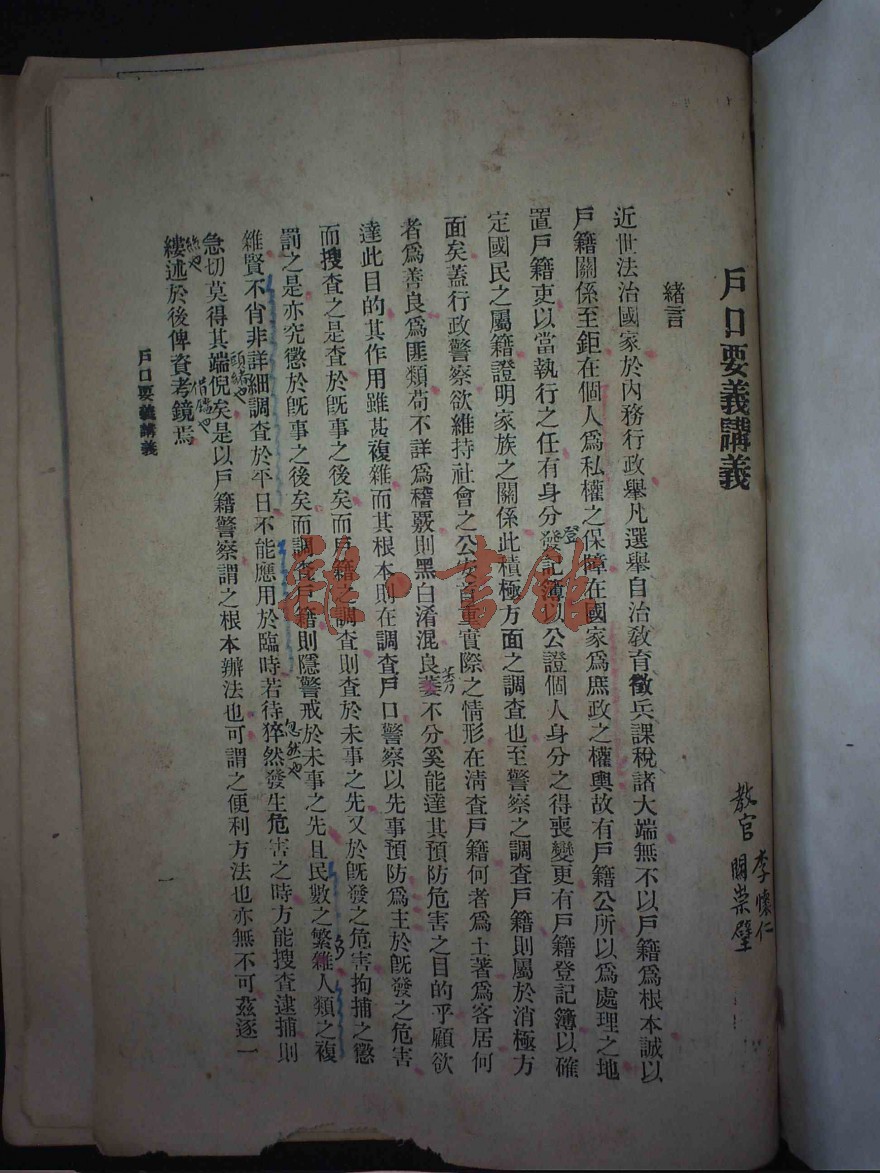 戶口要義講義
教官 李懷仁
關崇壁
緒言
近世法治國家於內務行政舉凡選舉自治教育徵兵課稅諸大端無不以戶籍爲根本誠以
戶籍關係至鉅在個人爲私權之保障在國家爲庶政之權輿故有戶籍公所以爲處理之地
置戶籍吏以當執行之任有身分發記簿以公證個人身分之得喪變更有戶籍登記簿以確
登
定國民之屬籍證明家族之關係此積極方面之調查也至警察之調查戶籍則屬於消極方
面矣蓋行政警察欲維持社會之公安首重實際之情形在淸査戶籍何者爲土著爲客居何
者爲善良爲匪類苟不詳爲稽覈則黑白淆混良萎不分奚能達其預防危害之目的乎顧欲
達此目的其作用雖甚複雜而其根本則在調查戶口警察以先事預防爲主於旣發之危害
而搜查之是查於旣事之後矣而戶籍之調查則查於未事之先又於旣發之危害拘捕之懲
罰之是亦究懲於旣事之後矣而調查戶籍則隱警戒於未事之先且民數之繁雜人類之複
多
雜賢不肖非詳細調查於平日不能應用於臨時若待猝然發生危害之時方能搜查逮捕則
忽然也
急切莫得其端倪矣是以戶籍警察謂之根本辦法也可謂之便利方法也亦無不可茲逐一
頭緒也
縷述於後俾資考鏡焉
絲也
借鏡也
戶口要義講義
一
雜·書館